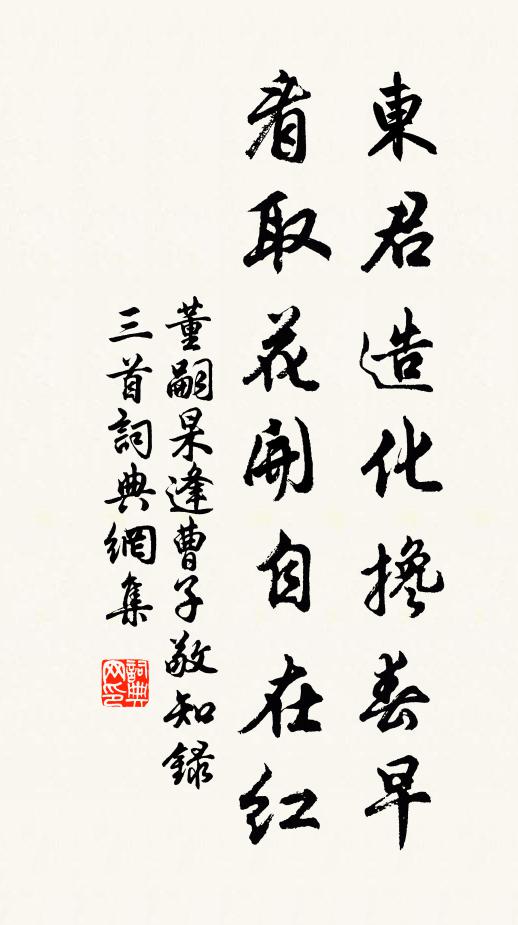 東君造化攙春早
看取花開自在紅
董嗣杲逢曹子敬知錄
三首詞典網集
詞典网印